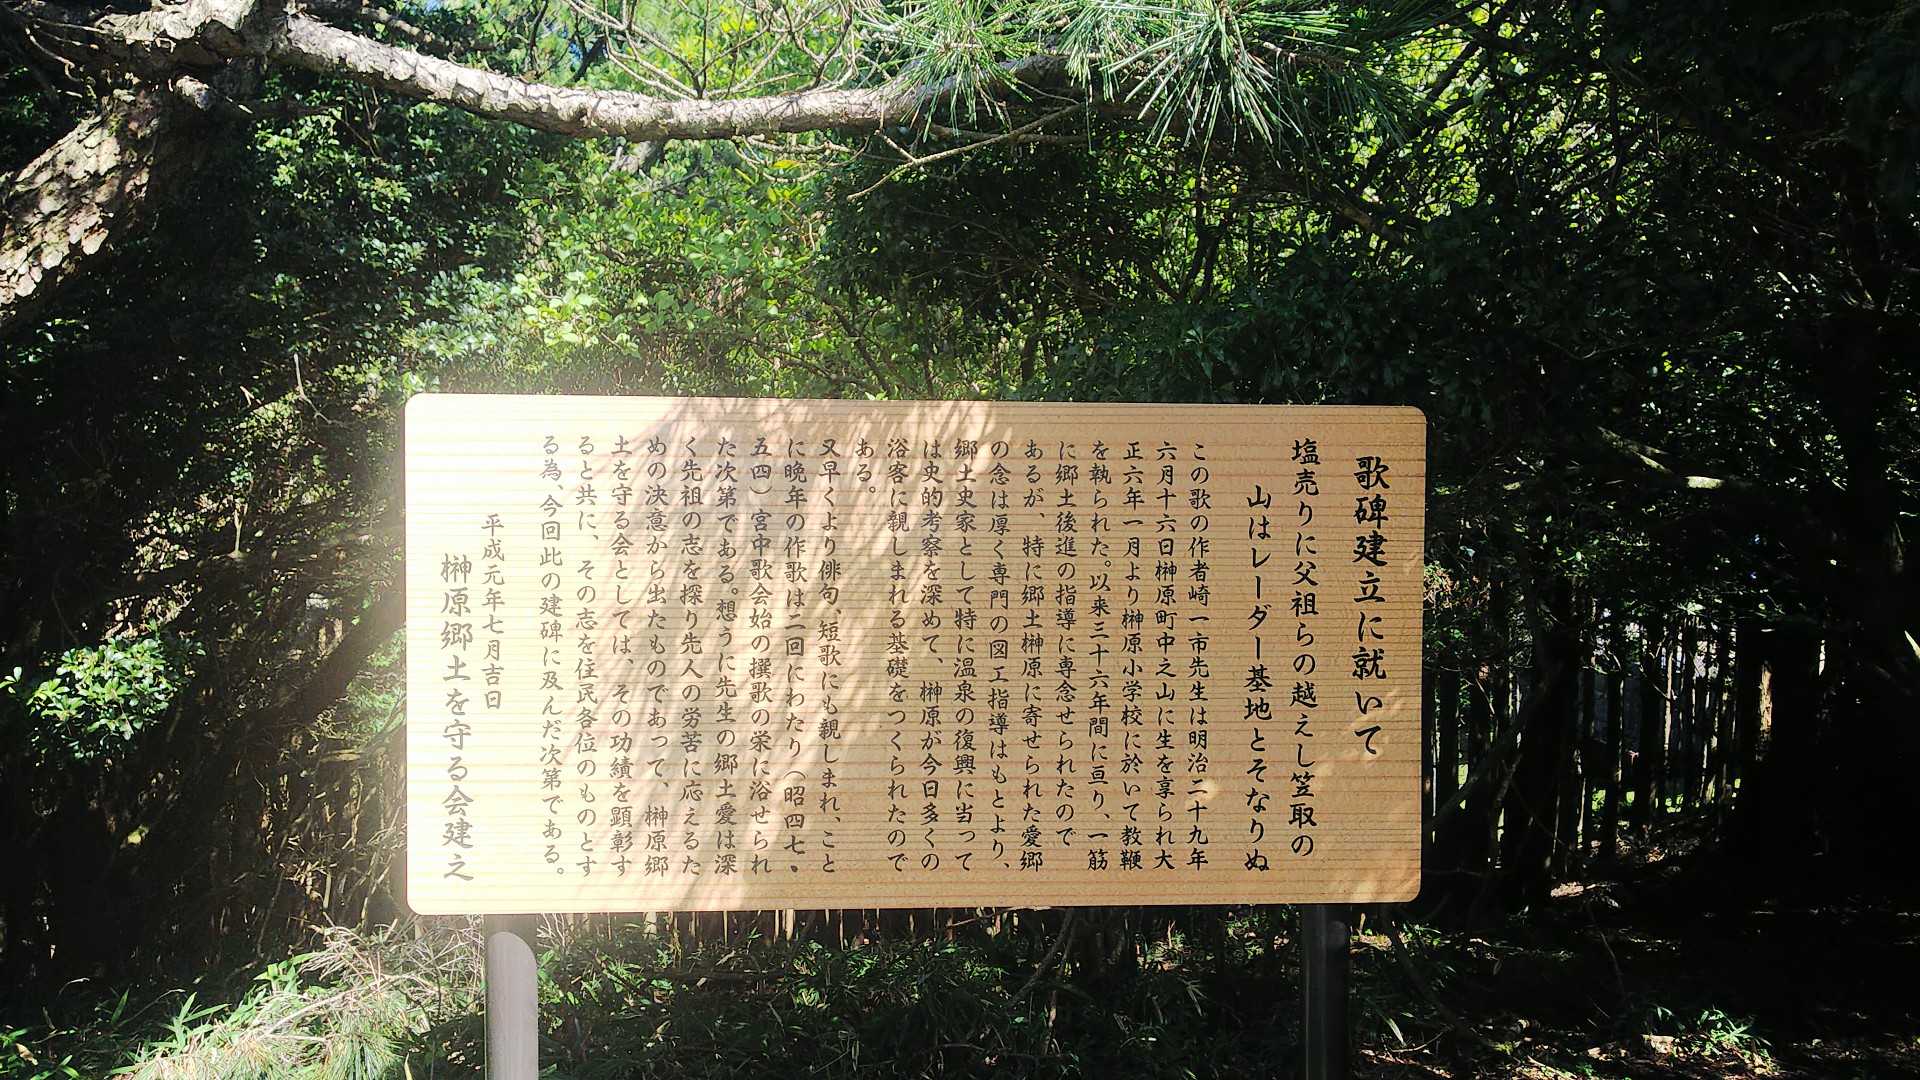 歌碑建立に就いて
塩売りに父祖らの越えし笠取の
山はレーダー基地とそなりぬ
この歌の作者崎一市先生は明治二十九年
六月十六日榊原町中之山に生を享られ大
正六年一月より榊原小学校に於いて教鞭
を執られた。以来三十六年間に亘り、一筋
に郷土後進の指導に専念せられたので
あるが、特に郷土榊原に寄せられた愛郷
の念は厚く専門の図工指導はもとより、
郷土史家として特に温泉の復興に当って
は史的考察を深めて、榊原が今日多くの
浴客に親しまれる基礎をつくられたので
ある。
又早くより俳句、短歌にも親しまれ、こと
に晩年の作歌は二回にわたり（昭四七・
五四）宮中歌会始の撰歌の栄に浴せられ
た次第である。想うに先生の郷土愛は深
く先祖の志を探り先人の労苦に応えるた
めの決意から出たものであって、榊原郷
土を守る会としては、その功績を顕彰す
ると共に、その志を住民各位のものとす
る為、今回此の建碑に及んだ次第である。
平成元年七月吉日
榊原郷土を守る会建之